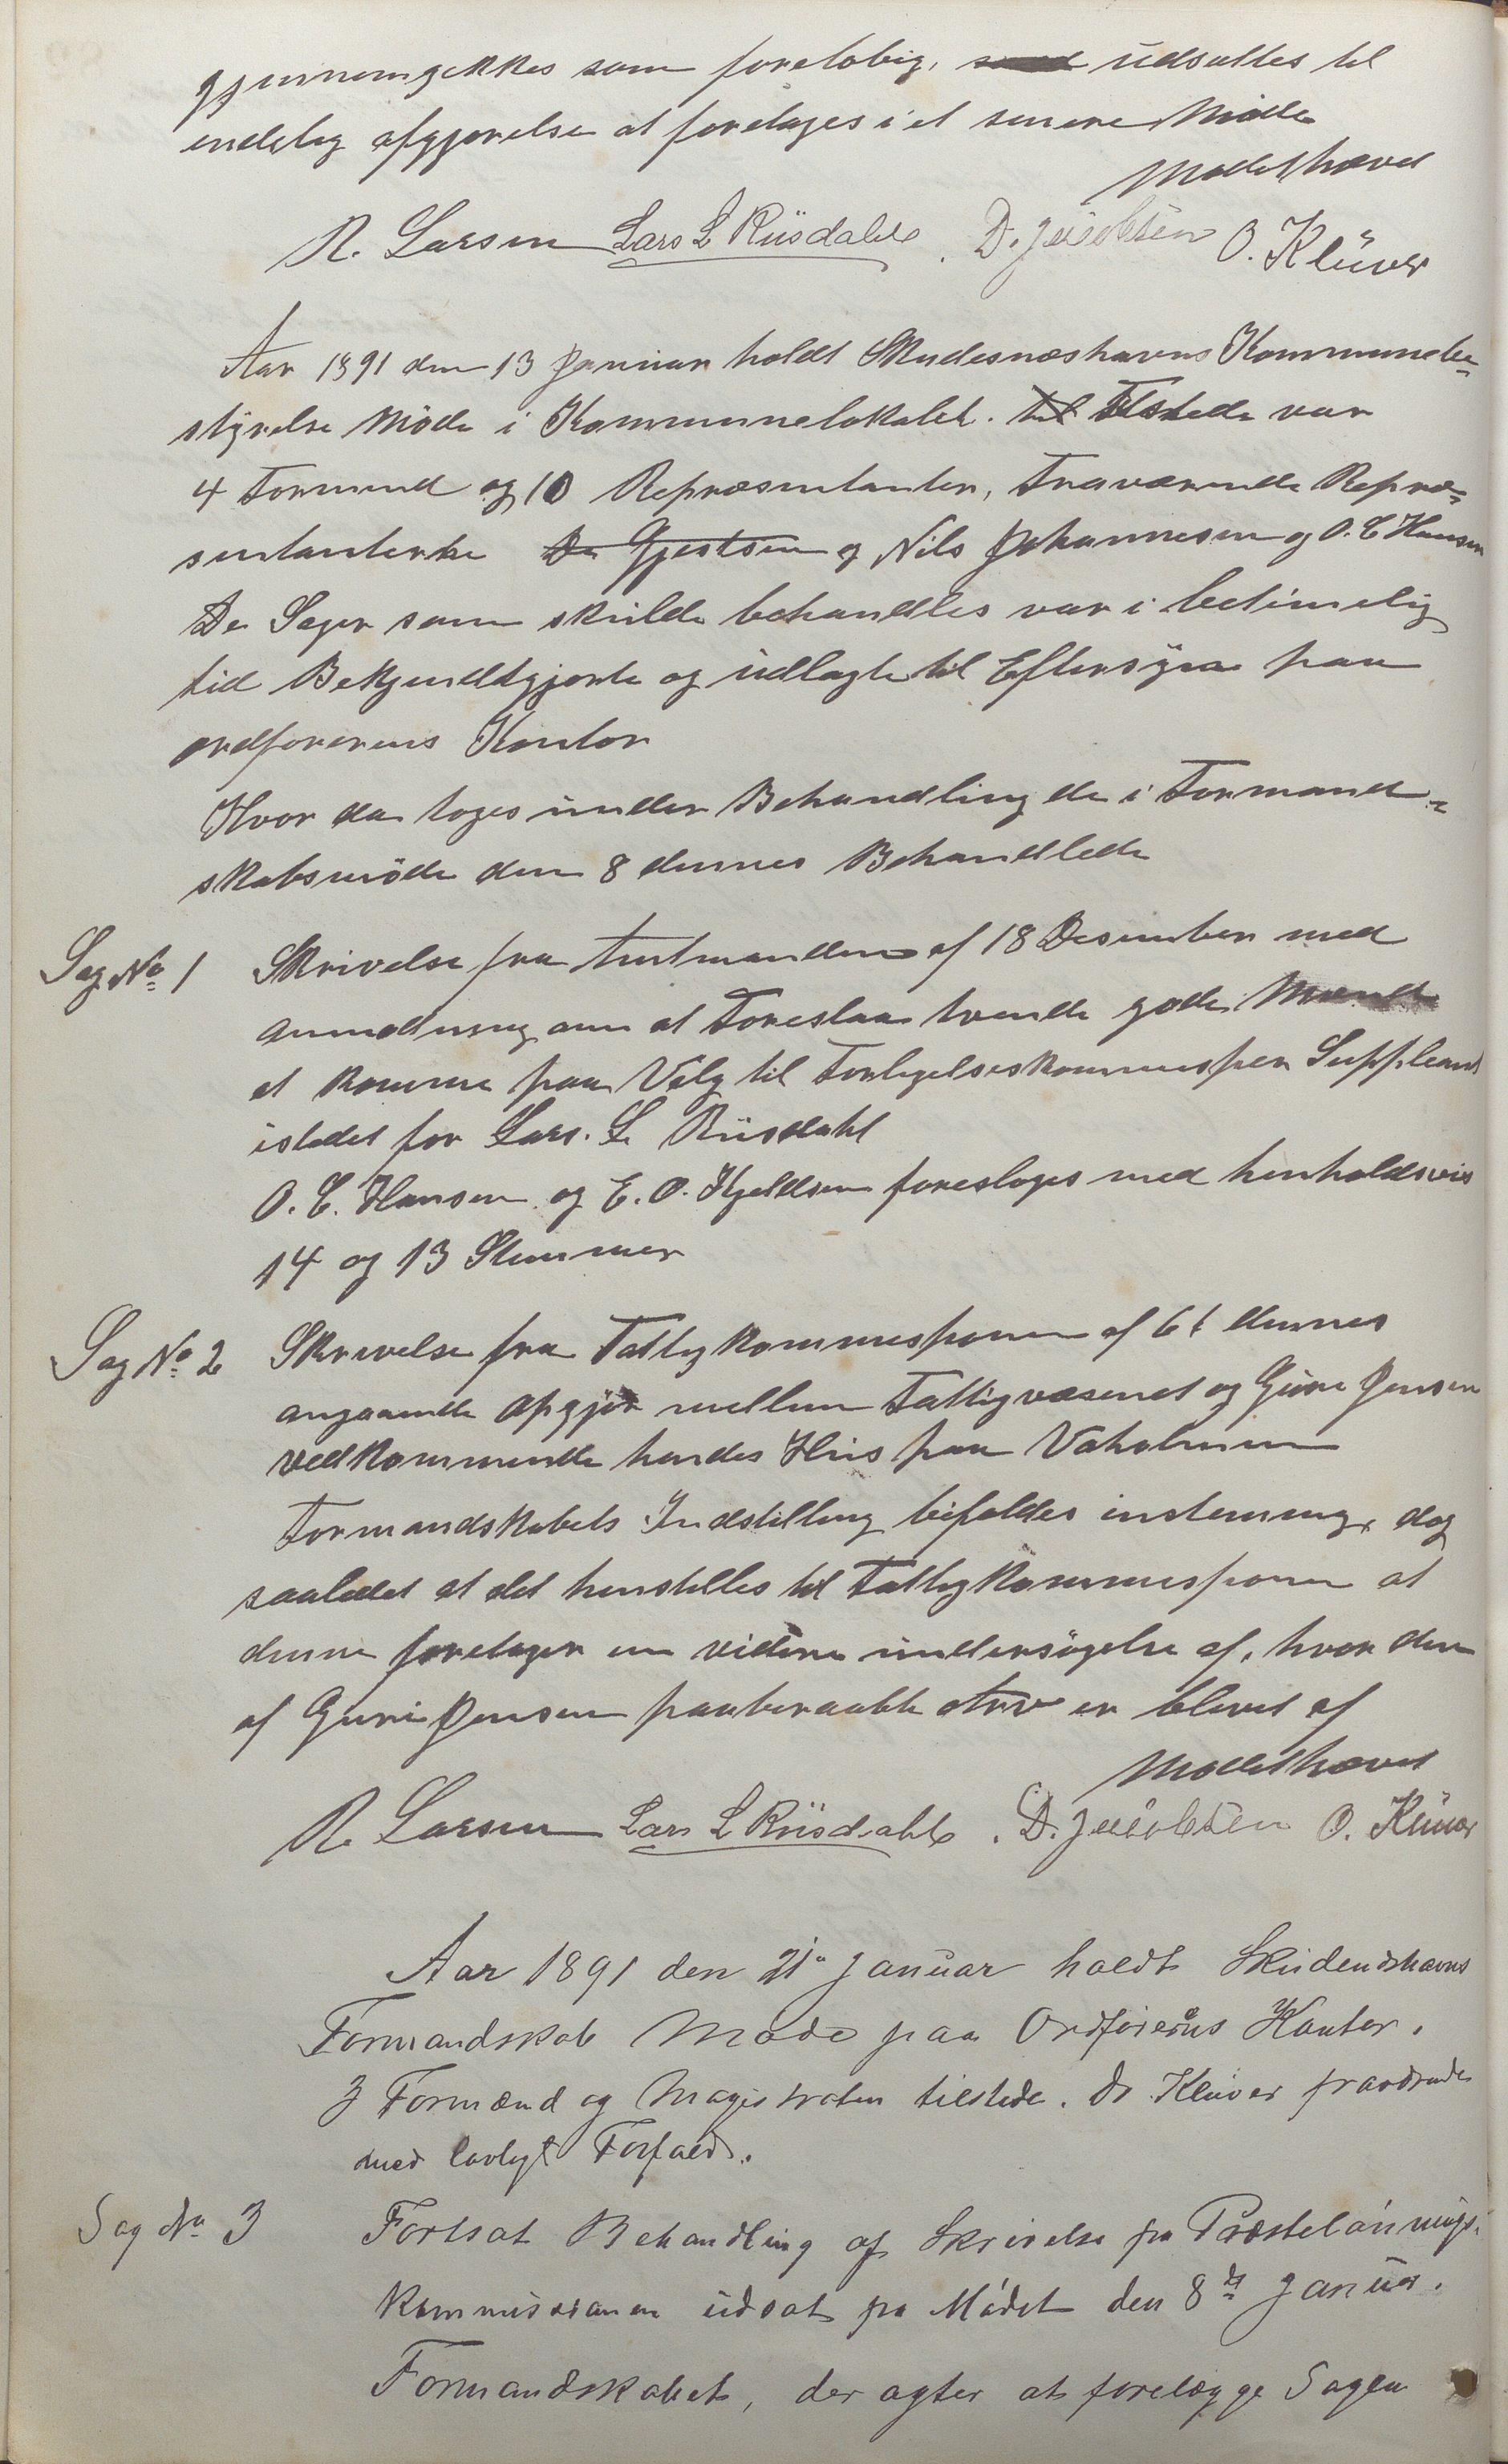 gjennemgikkes som foreløbig, udsattes til
endelig afgjørelse at foretages i et senere Møde
Mødet hævet
R. Larsen Lars L Riisdahl. D. Jacobsen O. Klüver
Aar 1891 den 13 Januar holdt Skudesnæshavns Kommunebe-
styrelse Møde i Kommunelokalet. til Tilstede var
4 Formænd og 10 Repræsentanter, Fraværende Repræ-
sentanterne De Gjestsen og Nils Johannesen og O. C Hansen
De Sager som skulde behandles var i betimelig
tid Bekjendtgjorte og udlagte til Eftersyn paa
ordførerens Kontor
Hvor da toges under Behandling de i Formand-
skabsmøde den 8 dennes Behandlede
Sag No 1 Skrivelse fra Amtmanden af 18 Desember med
anmodning om at Foreslaa tvende gode Mænd
at komme paa Valg til Forligelseskommissær Suppleant
istedet for Lars. L. Riisdahl
O. C. Hansen og E. O. Kjeldsen foresloges med henholdsvis
14 og 13 Stemmer
Sag No 2 Skrivelse fra Fattigkommisjonen af 6t dennes
angaaende Opgjør mellem Fattigvæsenet og Guri Jensen
vedkommende hendes Hus paa Vaholmen
Formandskabets Indstilling bifaldes enstemmig, dog
saaledes at det henstilles til Fattigkommisjonen at
denne foretager en videre undersøgelse af, hvor den
af Guri Jensen paaberaabte Arv er blevet af
Mødet hævet
R. Larsen Lars L Riisdahl. D. Jacobsen O. Klüver
Aar 1891 den 21de Januar holdt Skudeneshavns
Formandskab Møde paa Ordførerens Kontor.
3 Formænd og Magistraten tilstede. Dr Klüver fraværende
med lovligt Forfald.
Sag No 3 Fortsat Behandling af Skrivelse fra Præstelønnings-
kommissionen udsat fra Mødet den 8de Januar.
Formandskabet, der agter at forelægge Sagen